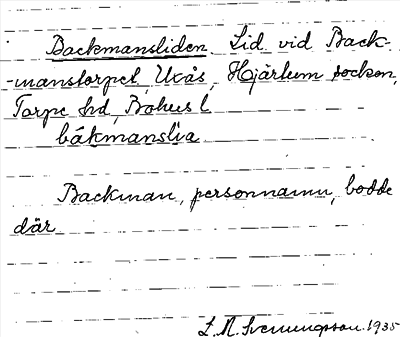 Backmansliden. Lid vid Back-
-manstorpet, Ukås, Hjärtum socken,
Torpe hd, Bohus l
båkmanslia
Backman, personnamn, bodde
där
L. M. Svenungsson. 1935